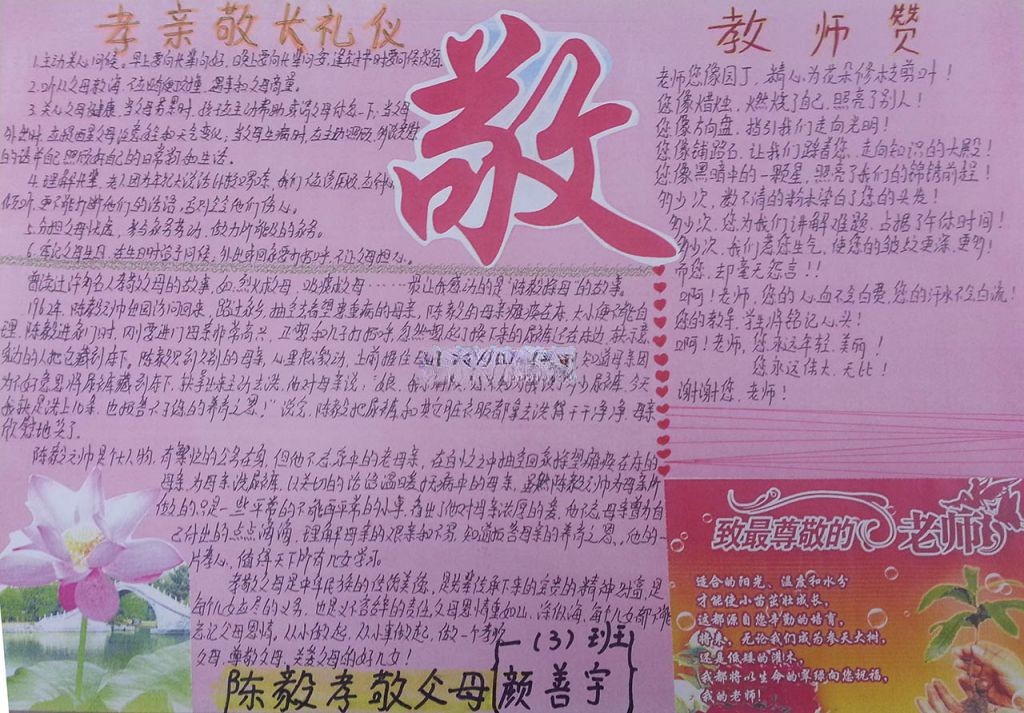 孝亲敬长礼仪
1.主动关心问候。早上要向长辈问好,晚上要向长辈问安,逢年过节时要问候祝福
2.听从父母教海,不应顺便顶撞,遇事和父母商量。
3.关心父母健康,当父母劳累时,孩子应主动帮助或请父母休息一下,当父母
外出时,应提醒父母注意
的话并自己照顾好自己的日常学习和生活。
4.理解长辈,老人因为年纪大说话
他们的话语,否则会令他们伤心。
5.分担父母忧虑,参与家务劳动,做力所能及的家务。
6.牢记父母生日,在生日时给予问候,外出或回家要打招呼,不让父母担心。
敬
曾读过许多名人孝敬父母的故事,如
最让我感动的是“陈毅探母”的故事。
1962年,陈毅元帅出国访问回来,路过家乡,抽空去看望患重病的母亲,陈毅的母亲瘫痪在床,大小便不能自
理,陈毅进家门时,
母亲非常高兴,
陈毅见到久别的母亲,心里很激动,上前握住母
他对母亲说:“娘,
今天
我就是洗上几条,也报答不了您的养育之恩!”说完,陈毅把尿裤和其它脏衣服都拿去洗得干干净净,母亲
欣慰地笑了。
陈毅元帅是个大人物,有繁忙的公务在身,但他不忘家中的老母亲,在百忙之中抽空回家探望瘫痪在床的
母亲,为母亲洗尿裤,以关切的话语温暖了病中的母亲,虽然陈毅元帅为母亲所
做的只是一些平常的不能再平常的小事,看出了他对母亲浓厚的爱,他不忘母亲曾为自
己付出的点点滴滴,理解母亲的艰辛和不易,知道报答母亲的养育之恩。他的一
片孝心,值得天下所有儿女学习。
孝敬父母是中华民族的传统美德,是先辈传承下来的宝贵的精神财富,是
每个儿女应尽的义务,也是对
的责任,父母恩情重如山,深似海,每个儿女都不能
忘记父母恩情。从小做起,从小事做起,做一个孝敬
父母,尊敬父母,关爱父母的好儿女!
陈毅孝敬父母
一(3)班
颜善宇
教师赞
老师您像园丁,精心为花朵修枝剪叶!
您像蜡烛,燃烧了自己,照亮了别人!
您像方向盘,指引我们走向光明!
您像铺路石,让我们踩着您,走向知识的大殿!
您像黑暗中的一颗星,照亮了我们的锦锈前起!
多少次,数不清的粉末染白了您的头发!
多少次,您为我们讲解难题,占据了午休时间!
多少次,我们惹您生气,使您的皱纹更深、更多!
而您,却毫无怨言!!
啊!老师,您的心血不会白费,您的汗水不会白流!
您的教导,学生将铭记心头!
啊!老师,您永远年轻、美丽!
您永远伟大、无比!
谢谢您,老师!
致最尊敬的老师
适合的阳光、温度和水分
才能使小苗茁壮成长,
这都源自您辛勤的培育,
将来,无论我们成为参天大树,
还是低矮的灌木,
我都将以生命的翠绿向您祝福,
我的老师!